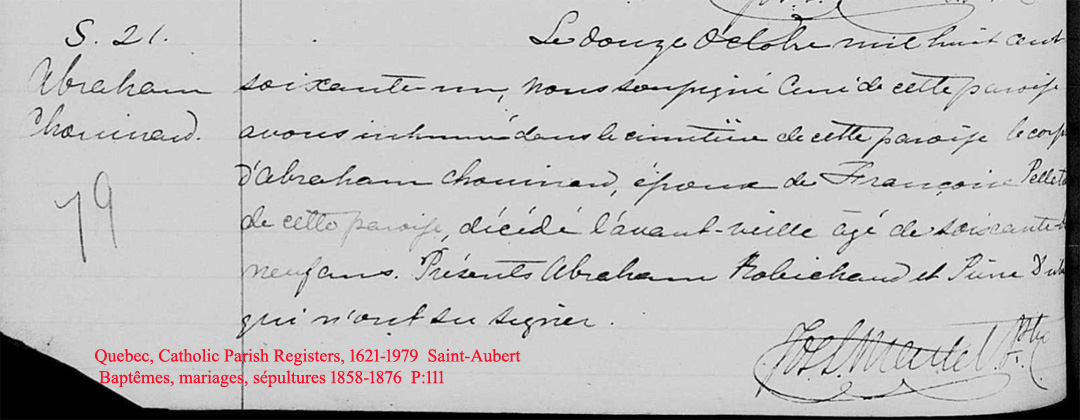 S. 21.
Abraham
Chouinard.
79
Le douze d'Octobre mil huit cent
soixante-un, nous soussigné Curé de cette paroisse
avons inhumé dans le cimetière de cette paroisse le corps
d'Abraham Chouinard, époux de Françoise Pellet
de cette paroisse, décédé l'avant-veille âgé de soixante
neuf ans. Présents Abraham Robichaud et Pierre
qui n'ont su signer.
Ptre
Quebec, Catholic Parish Registers, 1621-1979 Saint-Aubert
Baptêmes, mariages, sépultures 1858-1876 P:111